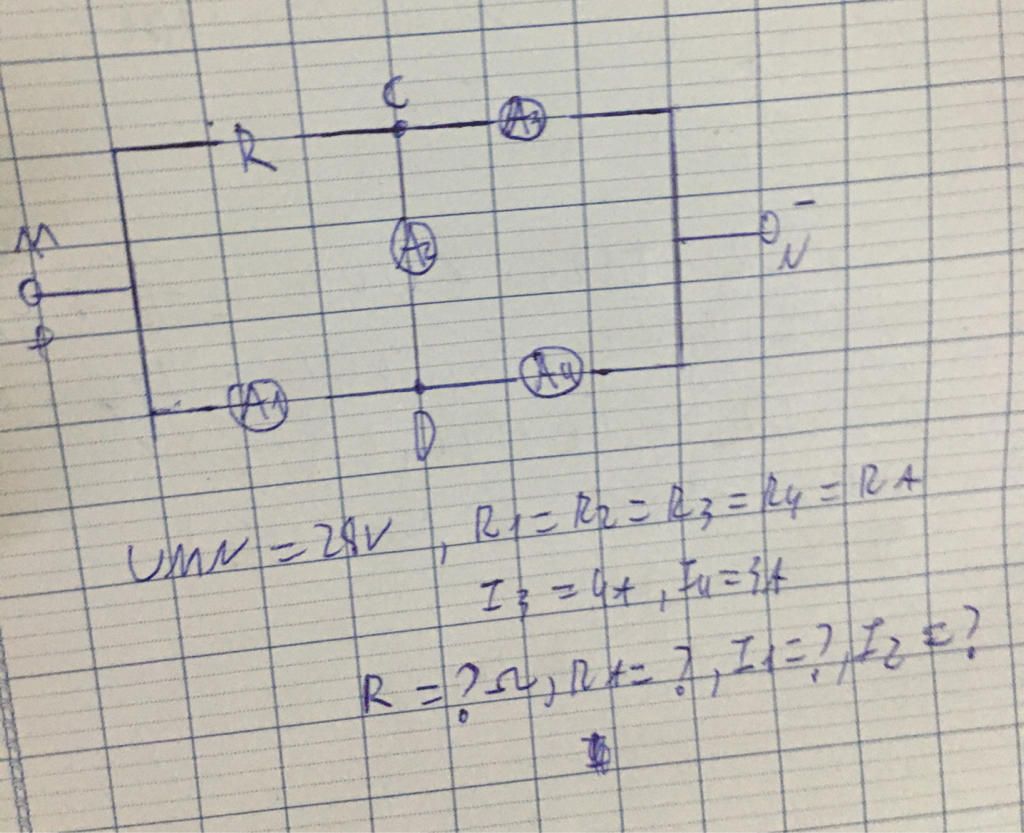 C
A3
R
M
A2
-
N
+
A1
A4
D
UMN = 28V, R1 = R2 = R3 = R4 = RA
I3 = 4A, I4 =
R = ? Ω, RA = ?, I1 = ?, I2 = ?